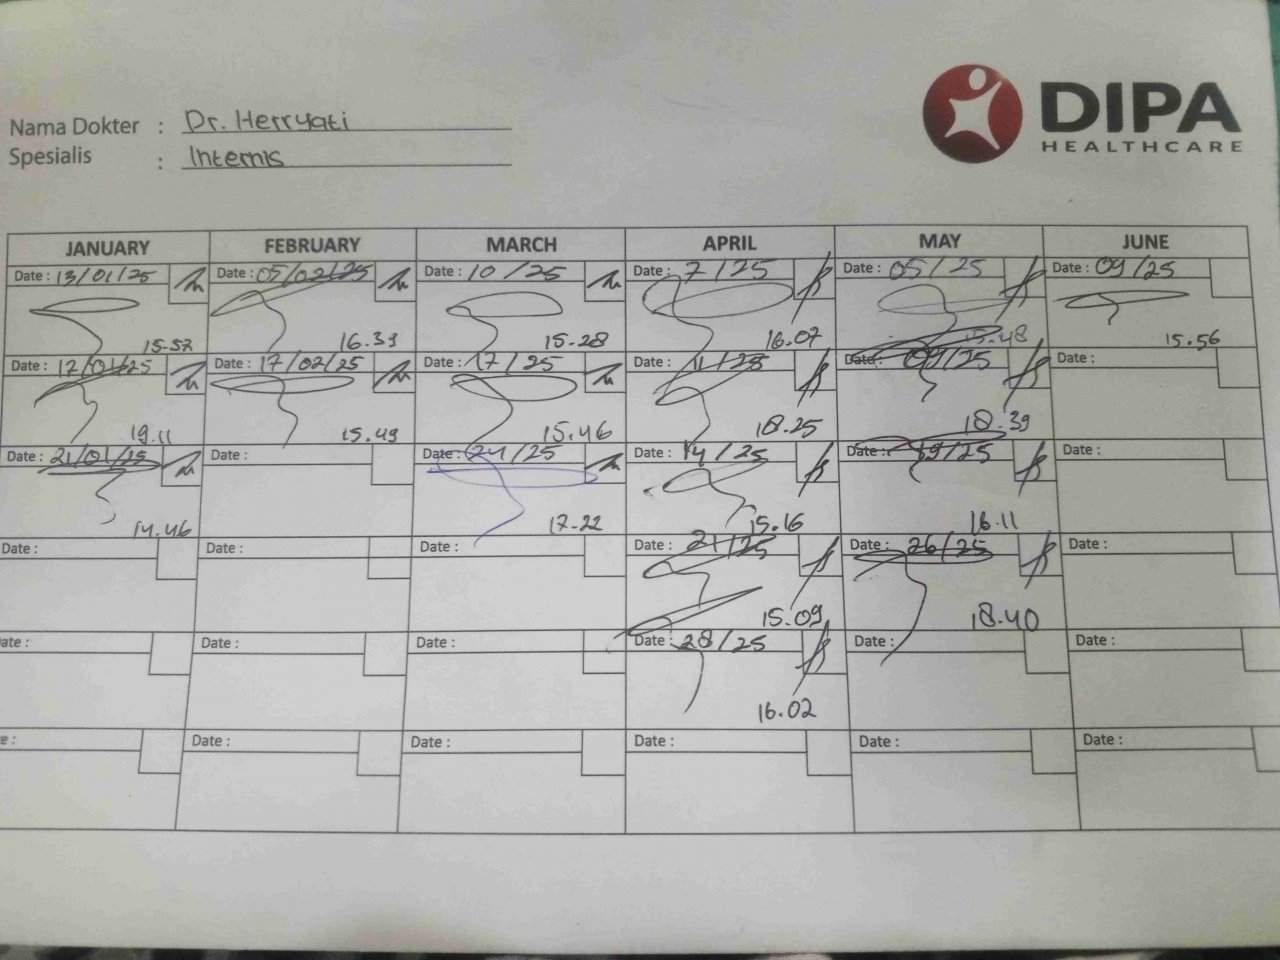 DIPA
HEALTHCARE
Nama Dokter : Dr. Herryati
Spesialis : Internis
JANUARY FEBRUARY MARCH APRIL MAY JUNE
Date : 13/01/25 Date : 05/02/25 Date : 10/25 Date : 7/25 Date : 05/25 Date : 09/25
15.57 16.39 15.28 16.07 15.48 15.56
Date : 12/01/25 Date : 17/02/25 Date : 17/25 Date : 11/25 Date: 09/25 Date :
19.11 15.49 15.46 18.25 18.39
Date : 21/01/25 Date : Date : 24/25 Date : 14/25 Date : 19/25 Date :
14.46 17.22 15.16 16.11
Date : Date : Date : Date : 21/25 Date : 26/25 Date :
15.09 18.40
ate : Date : Date : Date : 28/25 Date : Date :
16.02
e : Date : Date : Date : Date : Date :